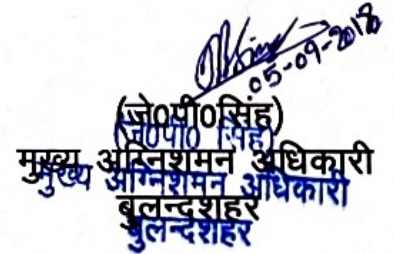 05-09-2018
(जे0पी0सिंह)
(जे0पी0 सिंह)
मुख्य अग्निशमन अधिकारी
मुख्य अग्निशमन अधिकारी
बुलन्दशहर
बुलन्दशहर